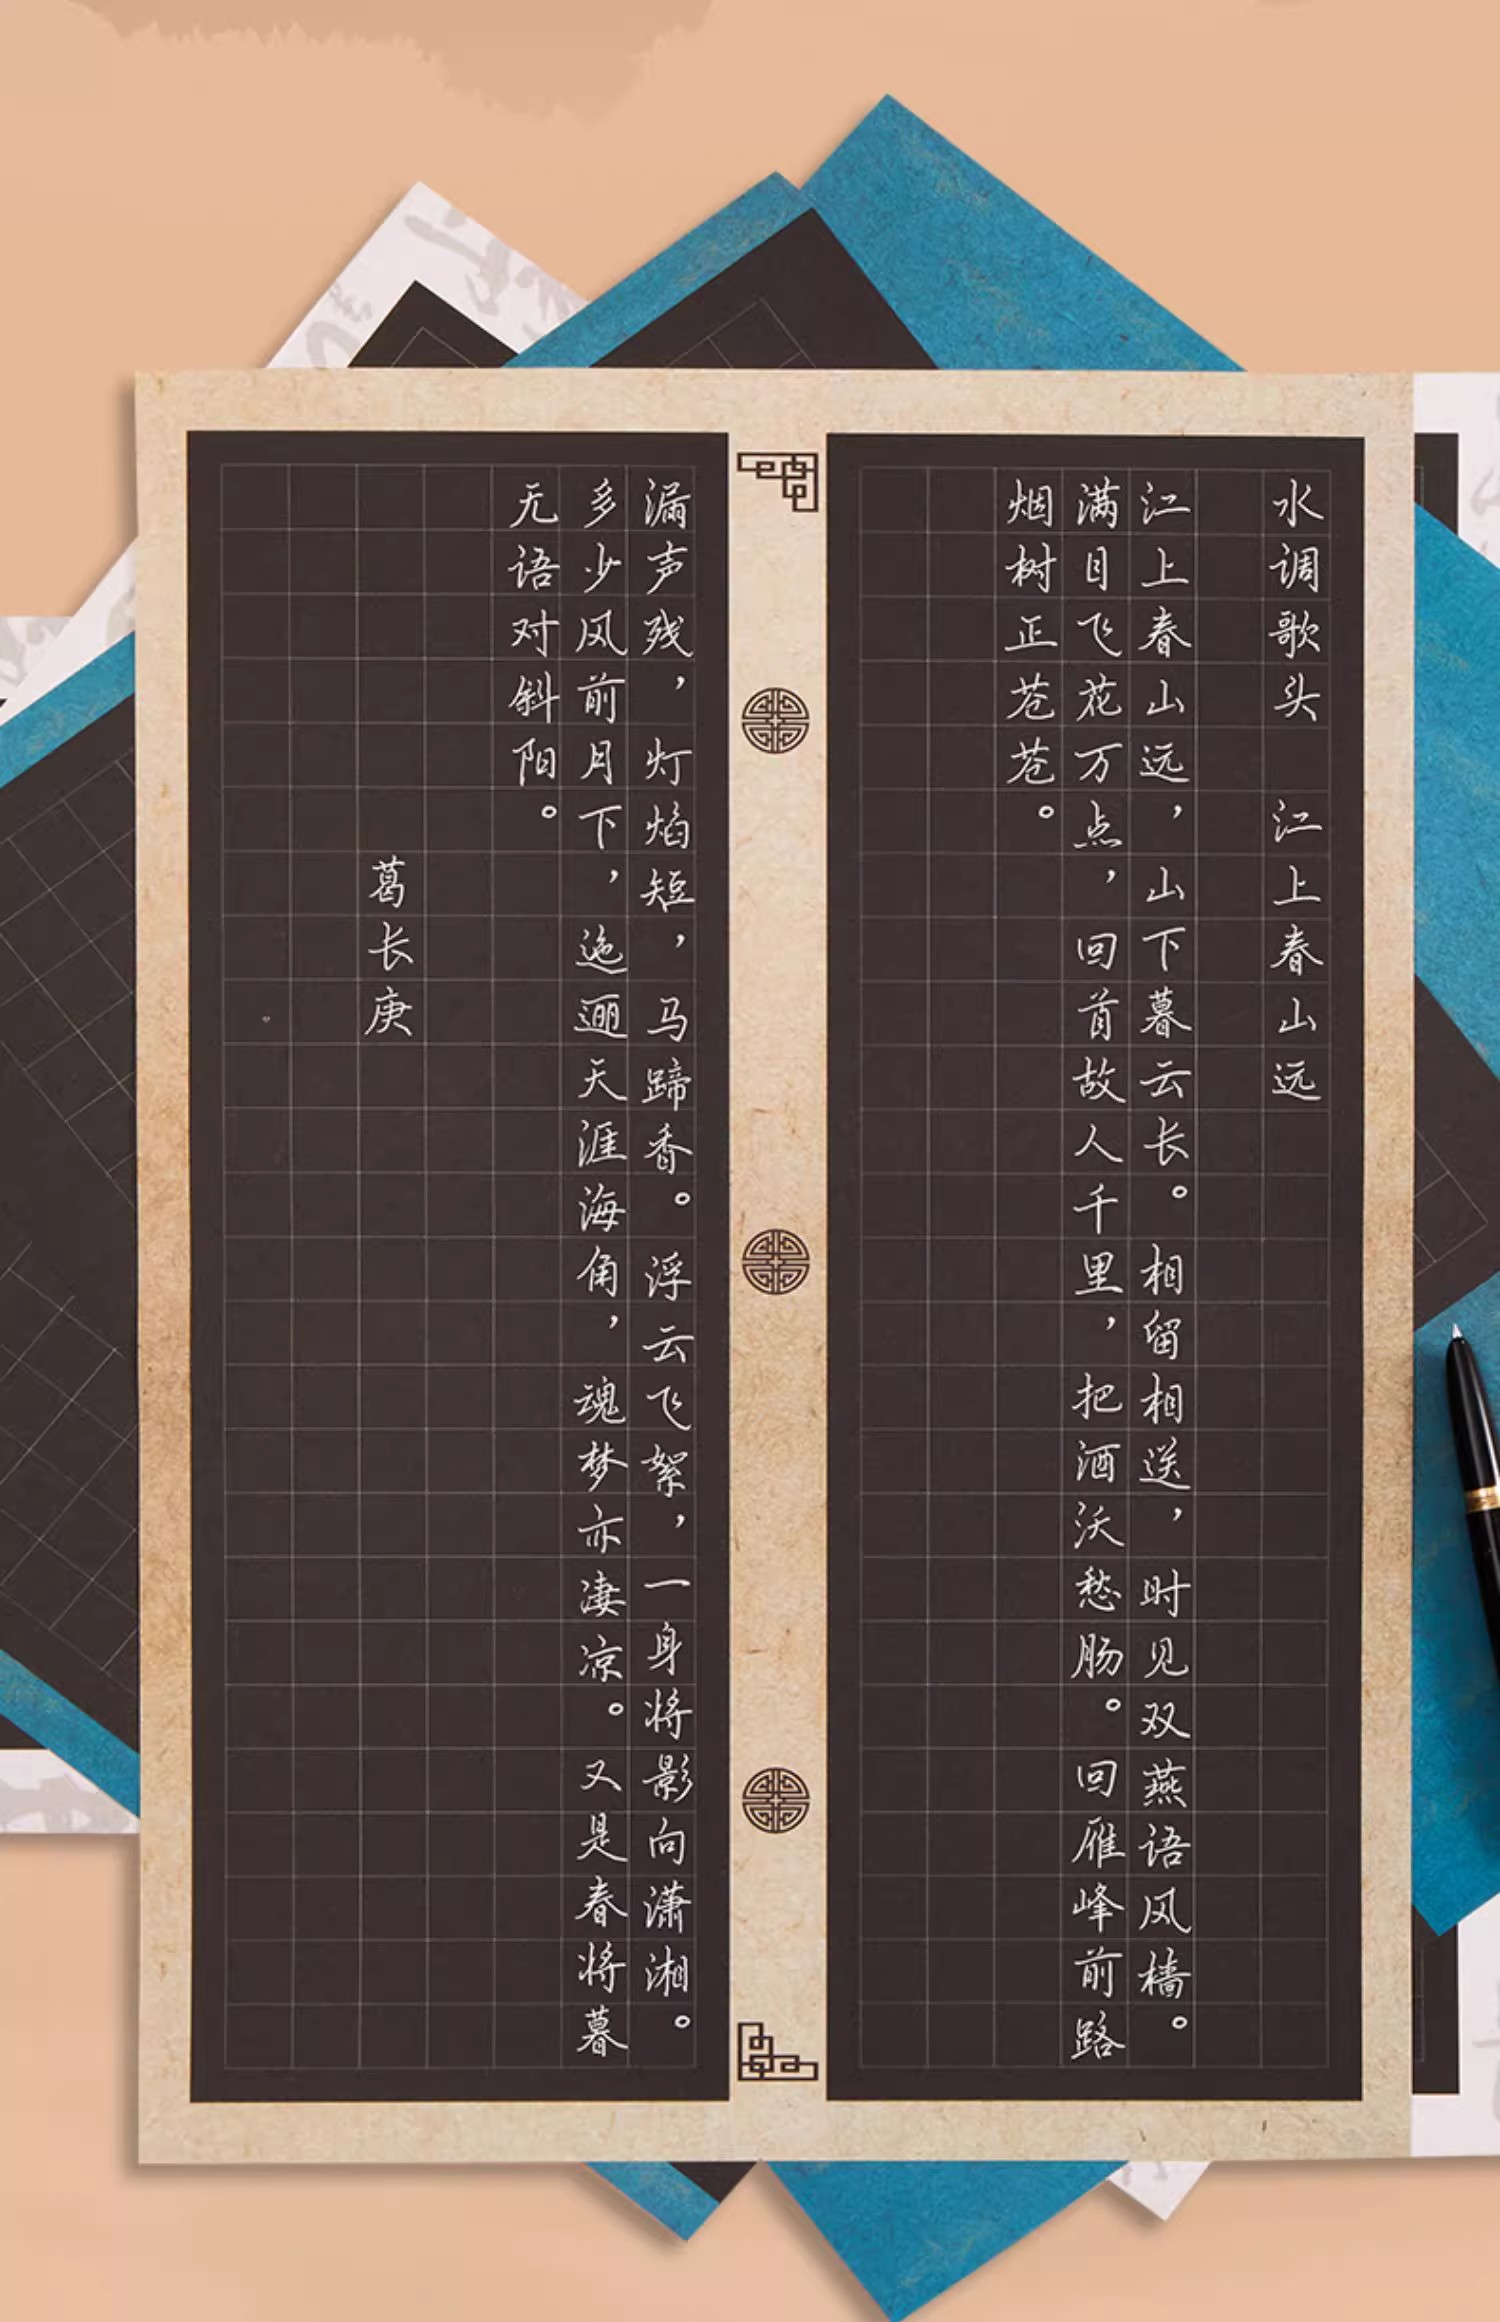 水调歌头 江上春山远
江上春山远，山下暮云长。相留相送，时见双燕语风樯。
满目飞花万点，回首故人千里，把酒沃愁肠。回雁峰前路
烟树正苍苍。
漏声残，灯焰短，马蹄香。浮云飞絮，一身将影向潇湘。
多少风前月下，迤逦天涯海角，魂梦亦凄凉。又是春将暮
无语对斜阳。
葛长庚